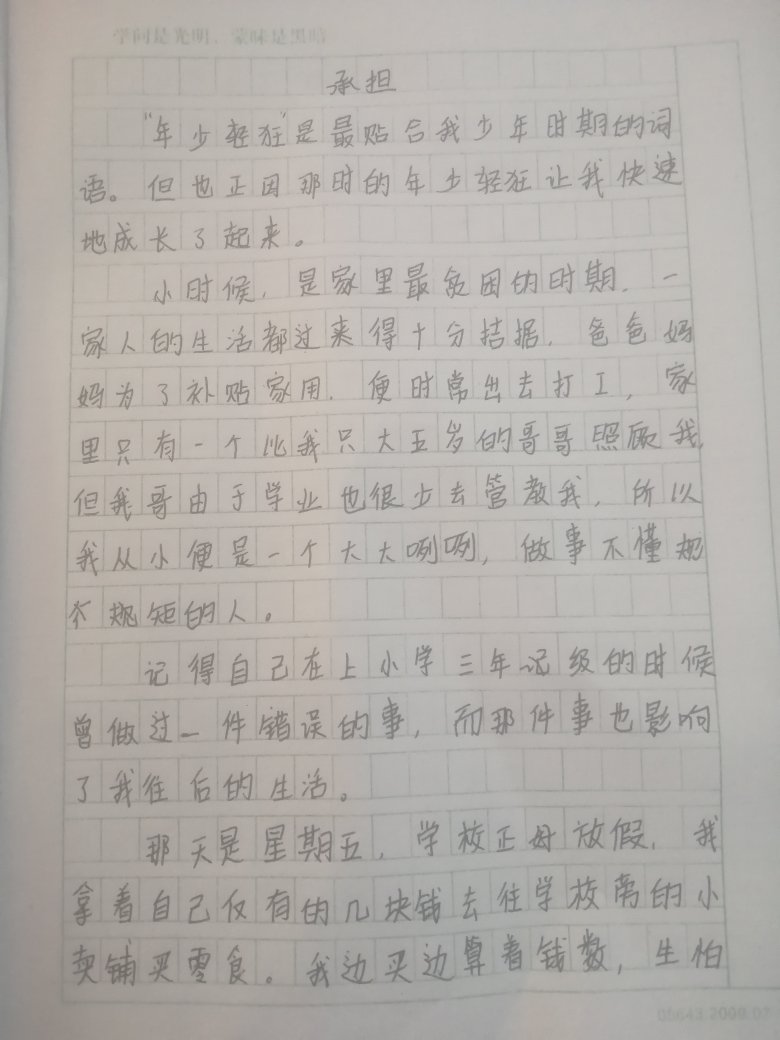 学问是光明，蒙昧是黑暗
承担
"年少轻狂"是最贴合我少年时期的词
语。但也正因那时的年少轻狂让我快速
地成长了起来。
小时候，是家里最贫困的时期，一
家人的生活都过来得十分拮据，爸爸妈
妈为了补贴家用，便时常出去打工，家
里只有一个比我只大五岁的哥哥照顾我，
但我哥由于学业也很少去管教我，所以
我从小便是一个大大咧咧，做事不懂规
不规矩的人。
记得自己在上小学三年记级的时候
曾做过一件错误的事，而那件事也影响
了我往后的生活。
那天是星期五，学校正好放假，我
拿着自己仅有的几块钱去往学校离的小
卖铺买零食。我边买边算着钱数，生怕